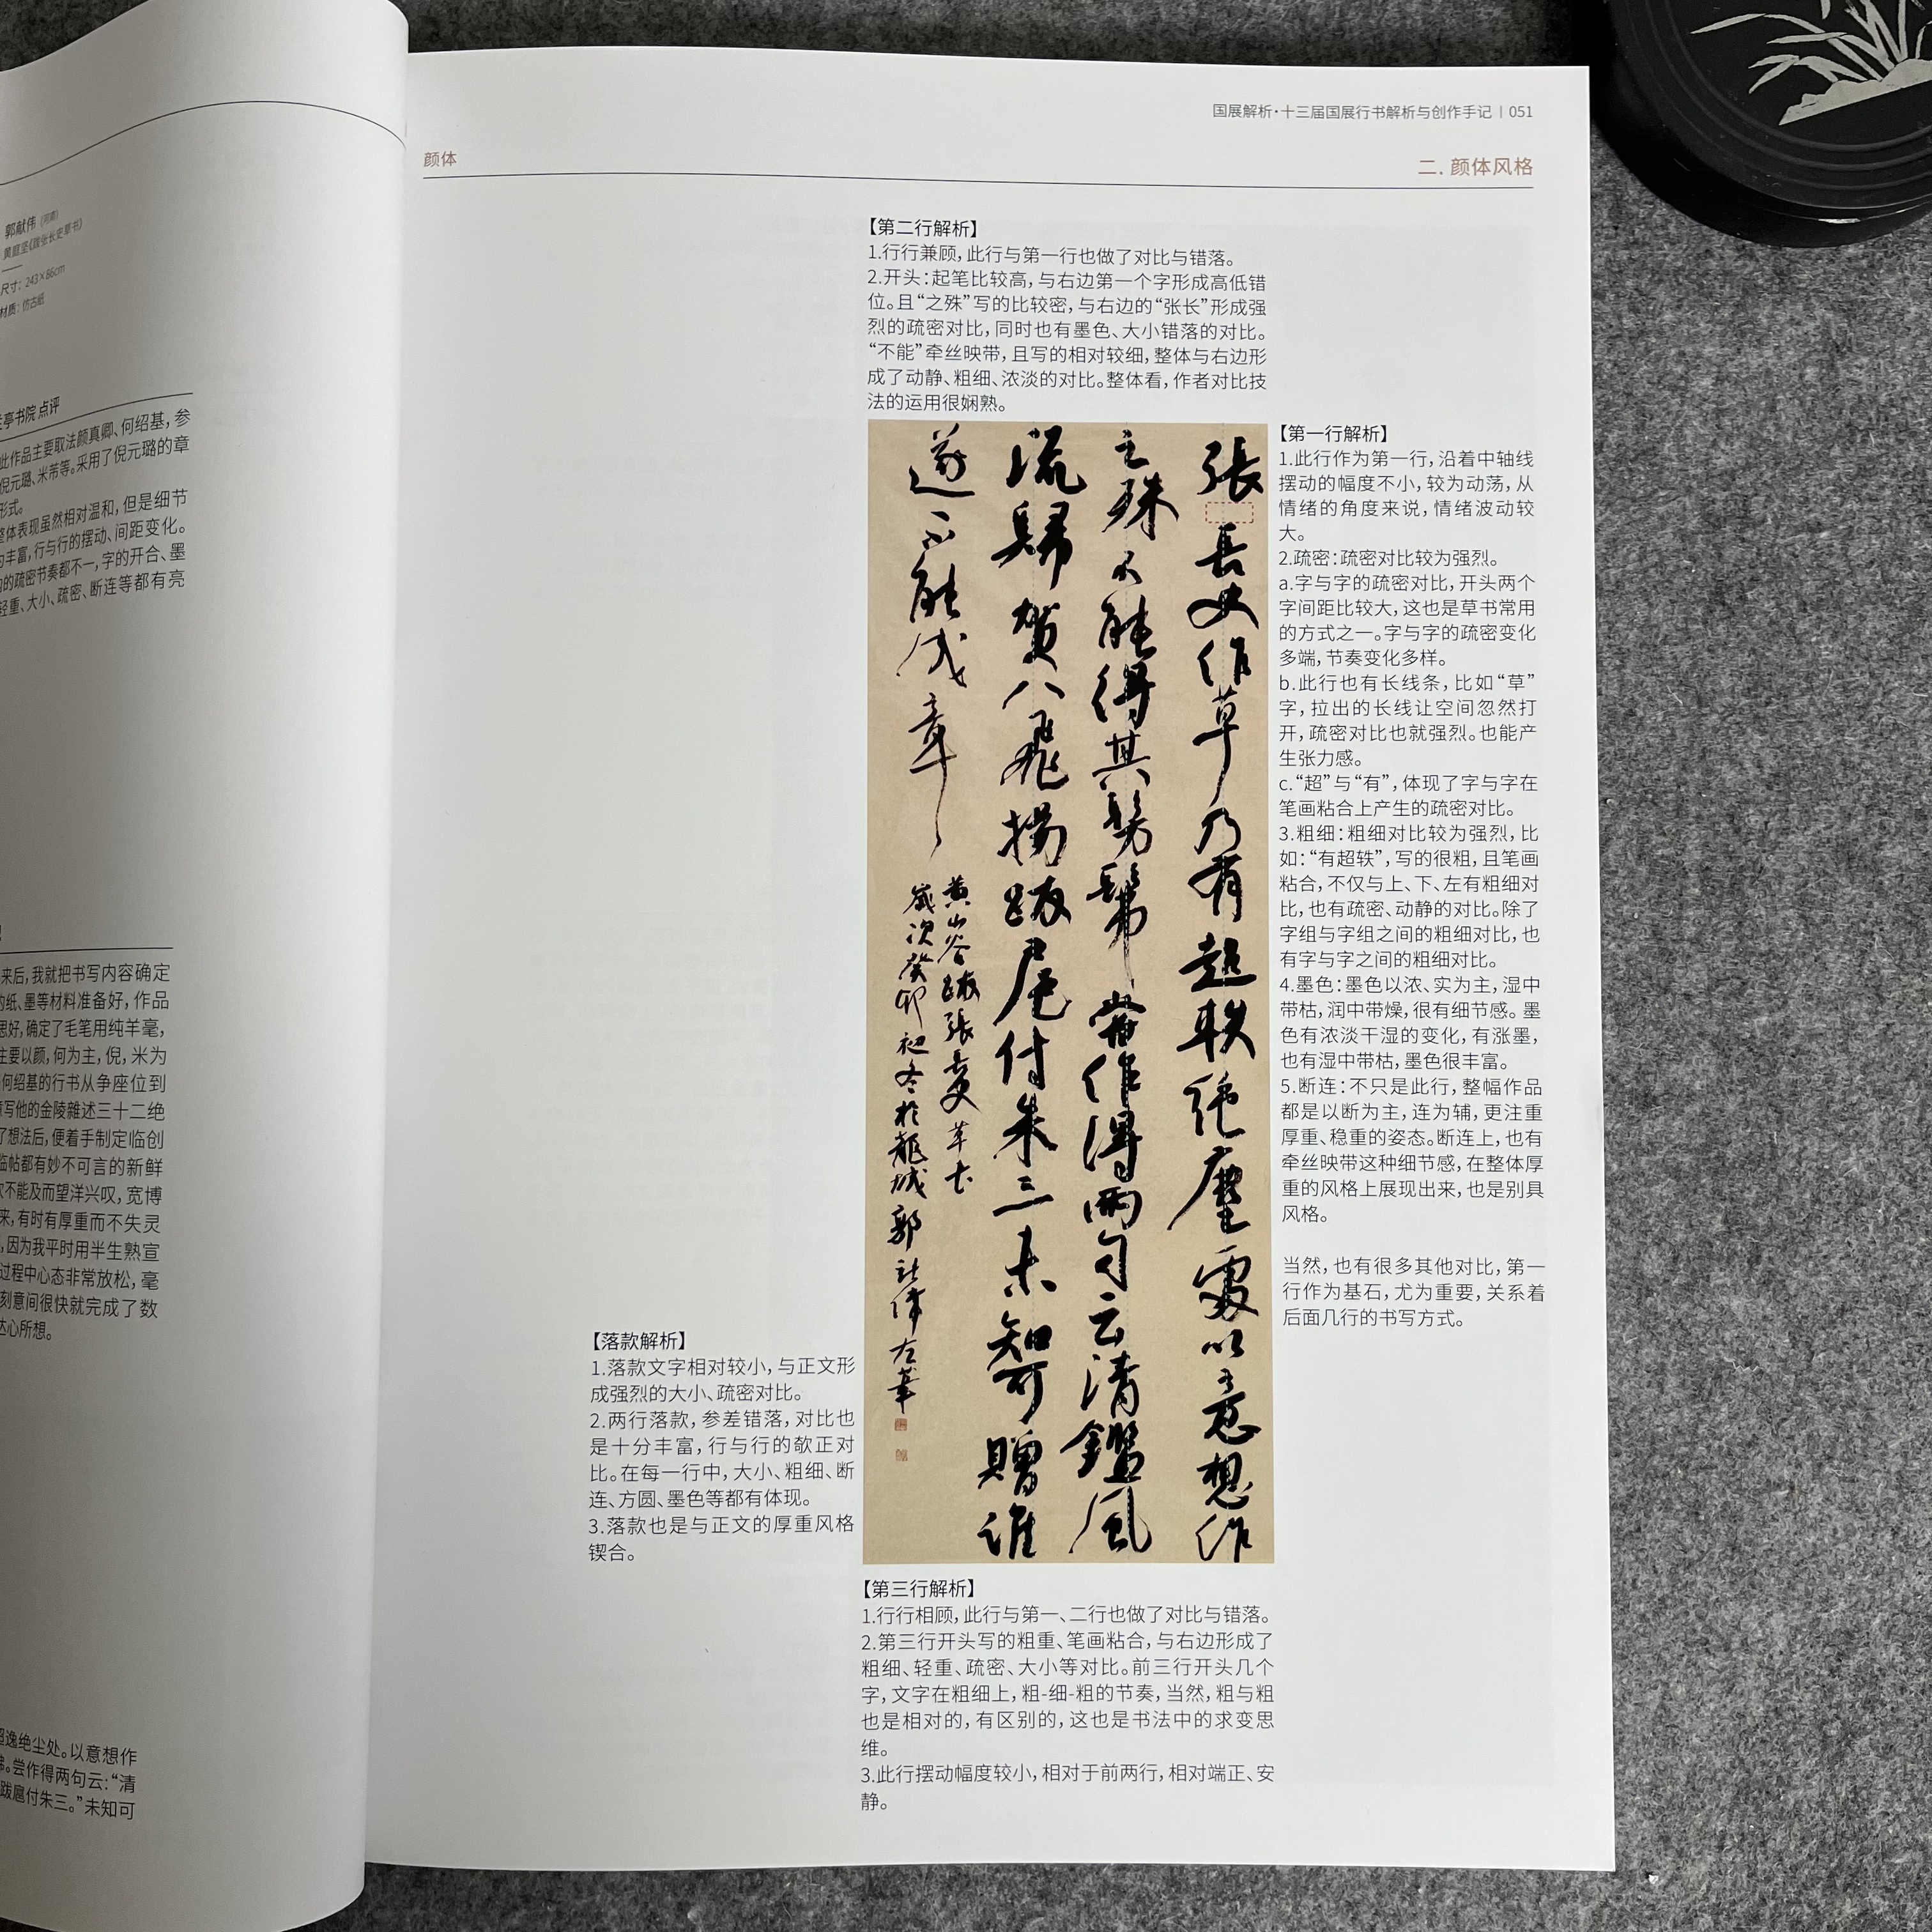 郭献伟（河南）
黄庭坚《跋张长史草书》
尺寸：243×86cm
材质：仿古纸
亭书院 点评
此作品主要取法颜真卿、何绍基，参
倪元璐、米芾等。采用了倪元璐的章
形式。
整体表现虽然相对温和，但是细节
丰富，行与行的摆动、间距变化。
的疏密节奏都不一，字的开合、墨
轻重、大小、疏密、断连等都有亮
来后，我就把书写内容确定
的纸、墨等材料准备好，作品
思好，确定了毛笔用纯羊毫，
主要以颜，何为主，倪，米为
何绍基的行书从争座位到
写他的金陵雜述三十二绝
了想法后，便着手制定临创
临帖都有妙不可言的新鲜
不能及而望洋兴叹，宽博
来，有时有厚重而不失灵
，因为我平时用半生熟宣
过程中心态非常放松，毫
刻意间很快就完成了数
达心所想。
超逸绝尘处。以意想作
。尝作得两句云：“清
跋扈付朱三。”未知可
国展解析·十三届国展行书解析与创作手记 | 051
颜体
二. 颜体风格
【第二行解析】
1.行行兼顾，此行与第一行也做了对比与错落。
2.开头：起笔比较高，与右边第一个字形成高低错
位。且“之殊”写的比较密，与右边的“张长”形成强
烈的疏密对比，同时也有墨色、大小错落的对比。
“不能”牵丝映带，且写的相对较细，整体与右边形
成了动静、粗细、浓淡的对比。整体看，作者对比技
法的运用很娴熟。
【第一行解析】
1.此行作为第一行，沿着中轴线
摆动的幅度不小，较为动荡，从
情绪的角度来说，情绪波动较
大。
2.疏密：疏密对比较为强烈。
a.字与字的疏密对比，开头两个
字间距比较大，这也是草书常用
的方式之一。字与字的疏密变化
多端，节奏变化多样。
b.此行也有长线条，比如“草”
字，拉出的长线让空间忽然打
开，疏密对比也就强烈。也能产
生张力感。
c.“超”与“有”，体现了字与字在
笔画粘合上产生的疏密对比。
3.粗细：粗细对比较为强烈，比
如：“有超轶”，写的很粗，且笔画
粘合，不仅与上、下、左有粗细对
比，也有疏密、动静的对比。除了
字组与字组之间的粗细对比，也
有字与字之间的粗细对比。
4.墨色：墨色以浓、实为主，湿中
带枯，润中带燥，很有细节感。墨
色有浓淡干湿的变化，有涨墨，
也有湿中带枯，墨色很丰富。
5.断连：不只是此行，整幅作品
都是以断为主，连为辅，更注重
厚重、稳重的姿态。断连上，也有
牵丝映带这种细节感，在整体厚
重的风格上展现出来，也是别具
风格。
当然，也有很多其他对比，第一
行作为基石，尤为重要，关系着
后面几行的书写方式。
張長史作草乃有超軼絕塵處以意想作
之殊不能得其髣髴嘗作得兩句云清鑑風
流歸賀八飛揚跋扈付朱三未知可贈誰
遂不能成章
黄山谷跋張長史草书
歲次癸卯初冬於龍城郭献偉左筆
【落款解析】
1.落款文字相对较小，与正文形
成强烈的大小、疏密对比。
2.两行落款，参差错落，对比也
是十分丰富，行与行的欹正对
比。在每一行中，大小、粗细、断
连、方圆、墨色等都有体现。
3.落款也是与正文的厚重风格
锲合。
【第三行解析】
1.行行相顾，此行与第一、二行也做了对比与错落。
2.第三行开头写的粗重、笔画粘合，与右边形成了
粗细、轻重、疏密、大小等对比。前三行开头几个
字，文字在粗细上，粗-细-粗的节奏，当然，粗与粗
也是相对的，有区别的，这也是书法中的求变思
维。
3.此行摆动幅度较小，相对于前两行，相对端正、安
静。